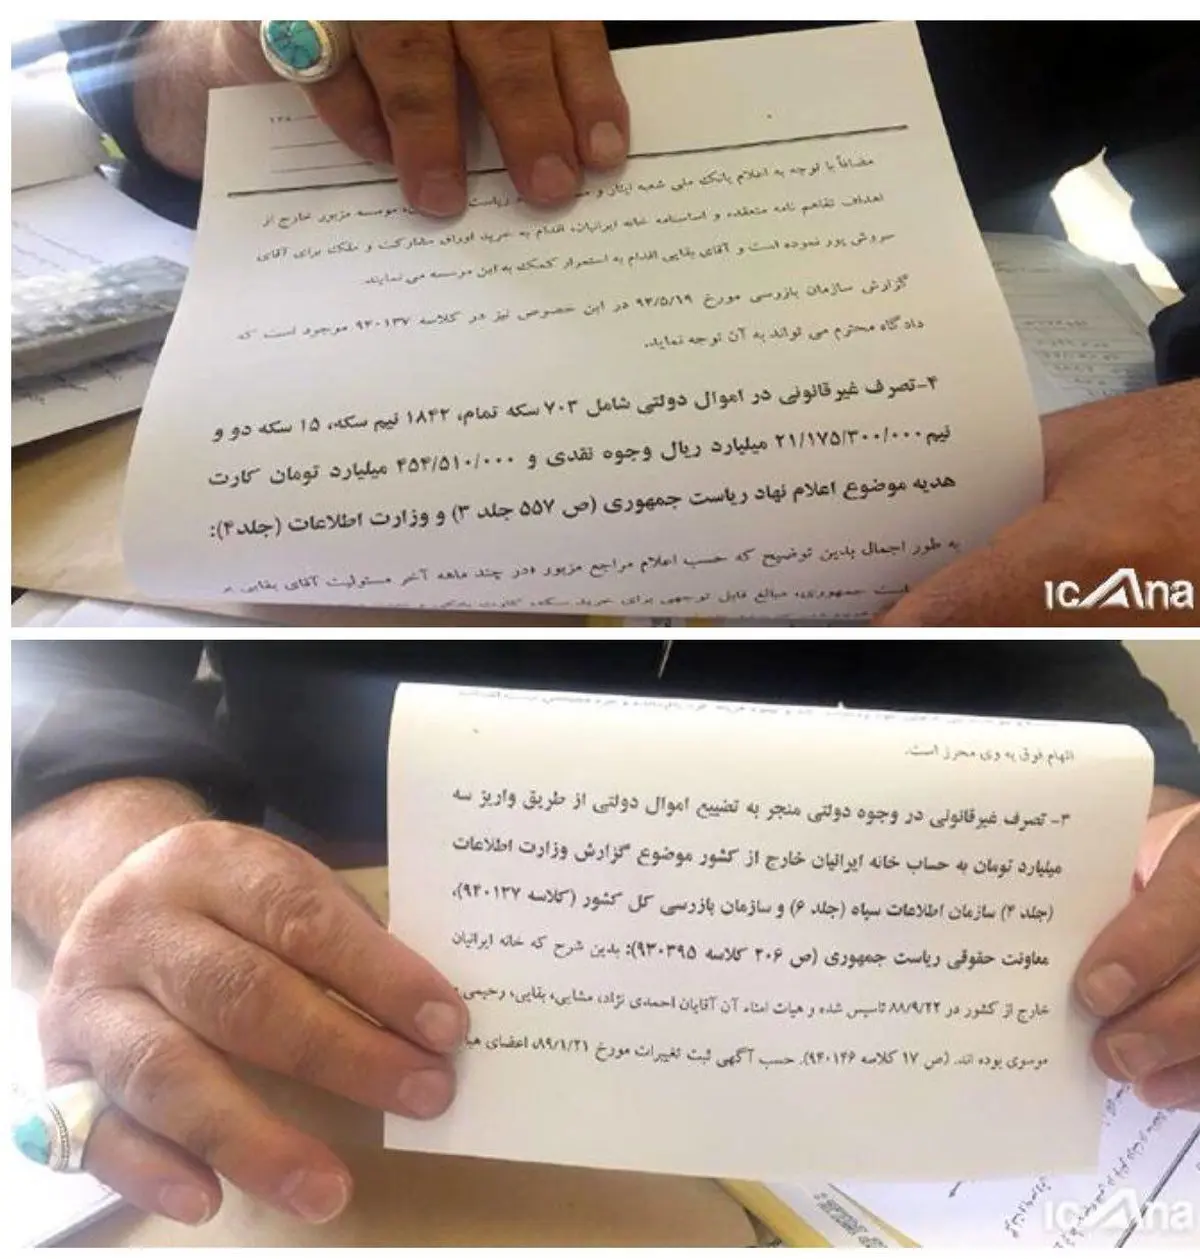 ۱۳۸
مضافاً با توجه به اعلام بانک ملی شعبه ایثار و ریاست موسسه مزبور خارج از
اهداف تفاهم نامه منعقده و اساسنامه خانه ایرانیان، اقدام به خرید اوراق مشارکت و ملک برای آقای
سروش پور نموده است و آقای بقایی اقدام به استمرار کمک به این موسسه می نمایند.
گزارش سازمان بازرسی مورخ ۹۲/۵/۱۹ در این خصوص نیز در کلاسه ۹۴۰۱۳۷ موجود است که
دادگاه محترم می تواند به آن توجه نماید.
۴-تصرف غیرقانونی در اموال دولتی شامل ۷۰۳ سکه تمام، ۱۸۴۲ نیم سکه، ۱۵ سکه دو و
نیم ۲۱/۱۷۵/۳۰۰/۰۰۰ میلیارد ریال وجوه نقدی و ۴۵۴/۵۱۰/۰۰۰ میلیارد تومان کارت
هدیه موضوع اعلام نهاد ریاست جمهوری (ص ۵۵۷ جلد ۳) و وزارت اطلاعات (جلد۴):
به طور اجمال بدین توضیح که حسب اعلام مراجع مزبور «در چند ماهه آخر مسئولیت آقای بقایی بر
است جمهوری، مبالغ قابل توجهی برای خرید سکه، کارت
ICANA
اتهام فوق به وی محرز است.
۳- تصرف غیرقانونی در وجوه دولتی منجر به تضییع اموال دولتی از طریق واریز سه
میلیارد تومان به حساب خانه ایرانیان خارج از کشور موضوع گزارش وزارت اطلاعات
(جلد ۴) سازمان اطلاعات سپاه (جلد ۶) و سازمان بازرسی کل کشور (کلاسه ۹۴۰۱۳۷)،
معاونت حقوقی ریاست جمهوری (ص ۲۰۶ کلاسه ۹۳۰۳۹۵): بدین شرح که خانه ایرانیان
خارج از کشور در ۸۸/۹/۲۲ تاسیس شده و هیات امناء آن آقایان احمدی نژاد، مشایی، بقایی، رحیمی
موسوی بوده اند. (ص ۱۷ کلاسه ۹۴۰۱۴۶). حسب آگهی ثبت تغییرات مورخ ۸۹/۱/۲۱، اعضای هیا
ICANA